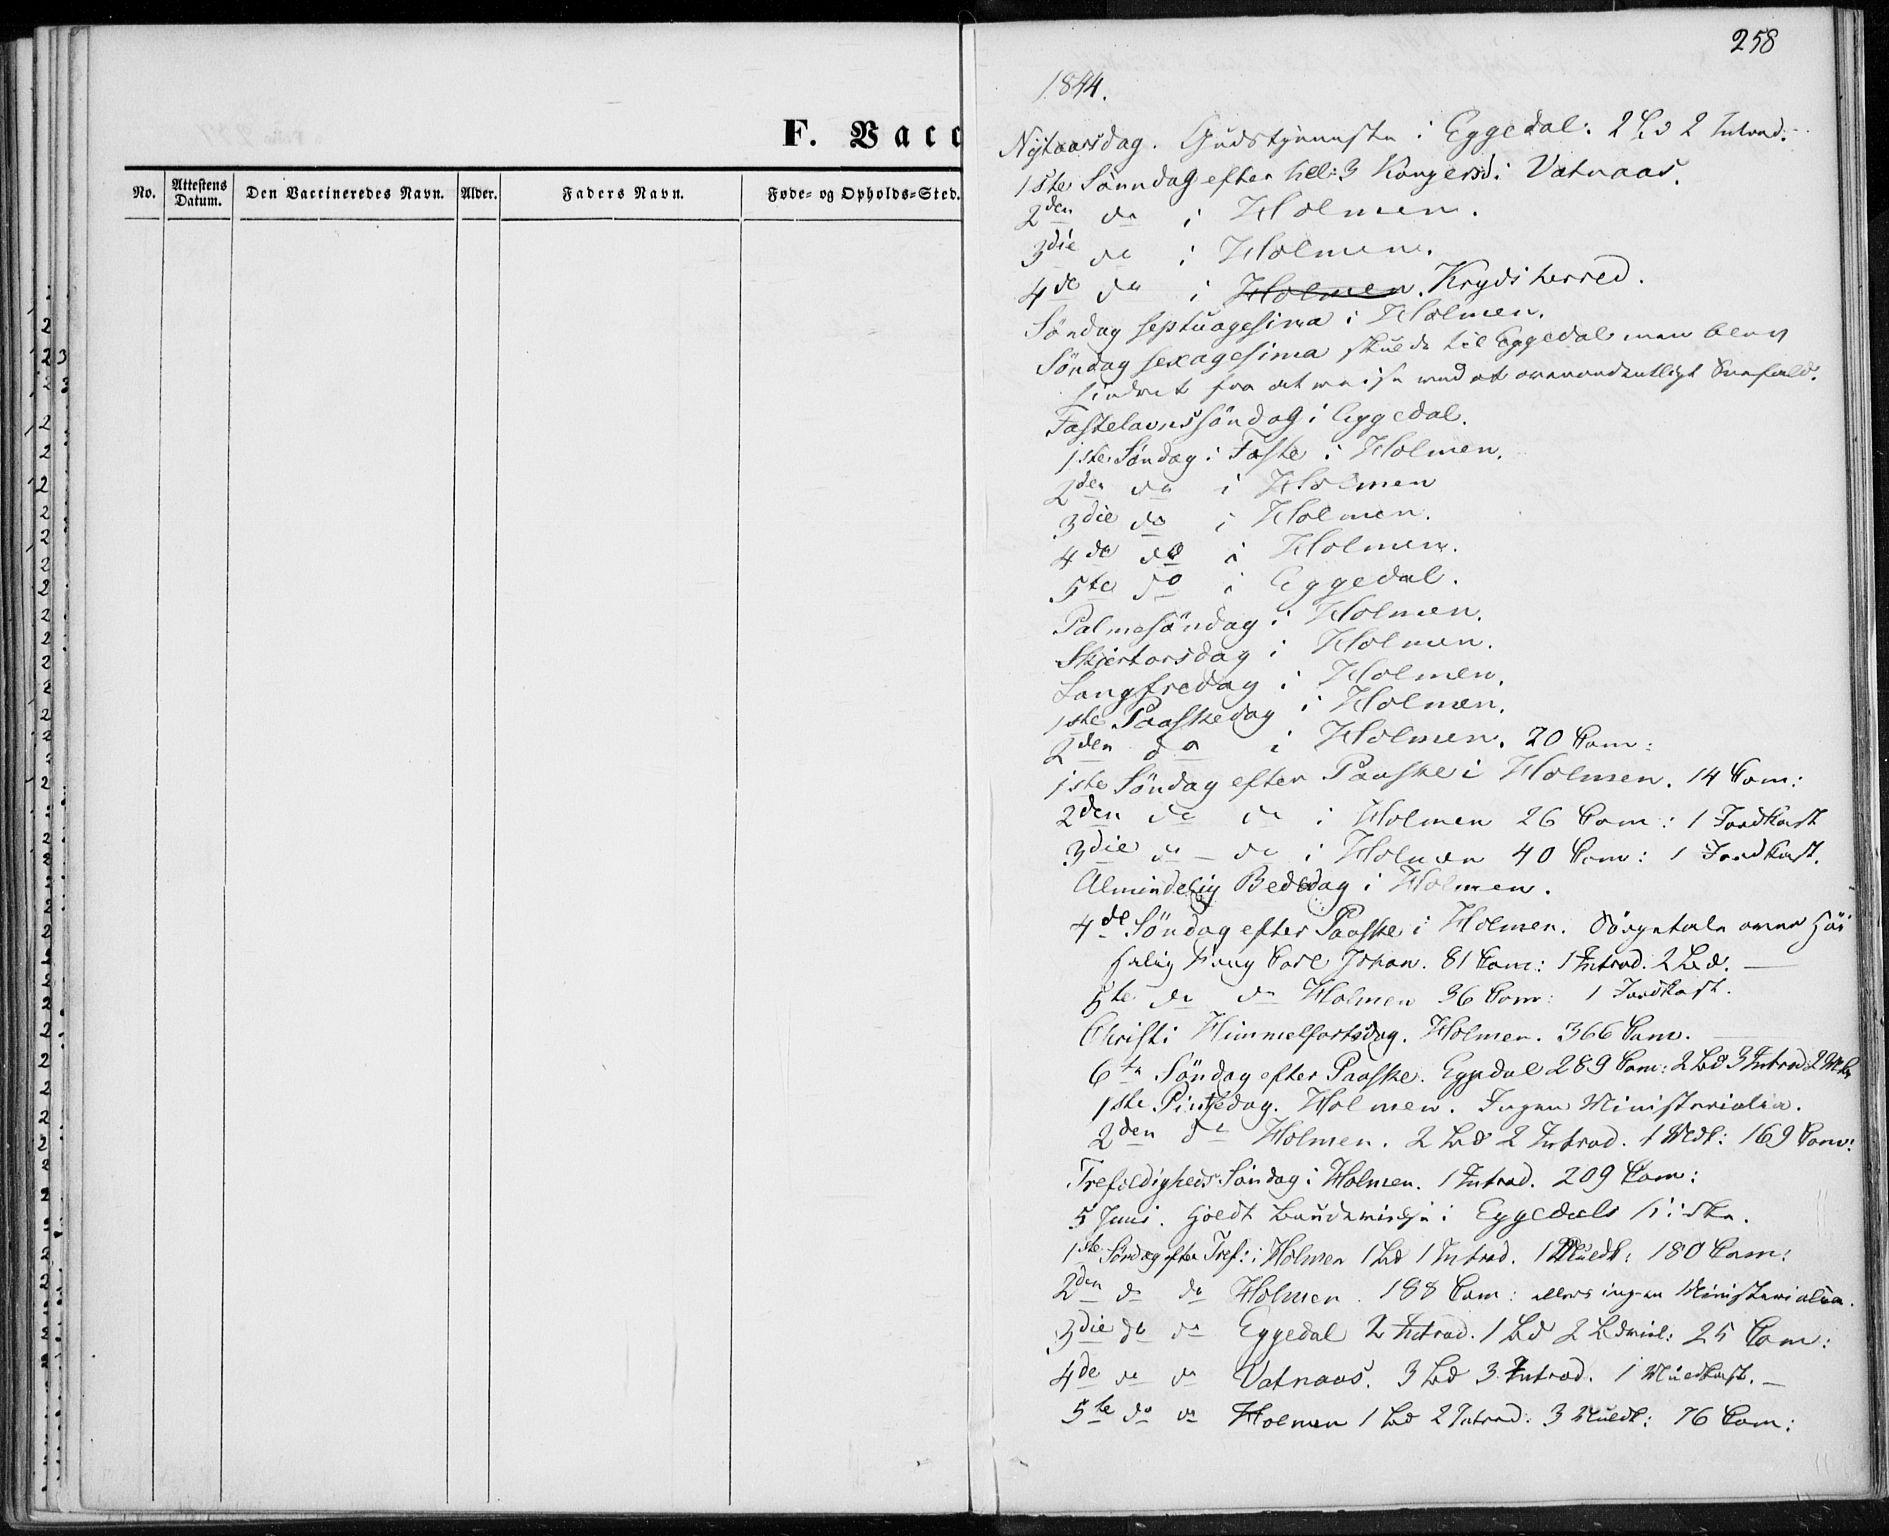 F. Vacc
No. Attestens Datum. Den Vaccineredes Navn. Alder. Faders Navn. Føde- og Opholds-Sted.
258
1844.
Nytaarsdag. Gudstjenneste i Eggedal: 2 2 Introd:
1ste Sönndag efter hel: 3 Kongersd i Vatnaas.
2den do i Holmen.
3die do i Holmen.
4de do i Holmen. Krydsherred.
Söndag septuagesima i Holmen.
Söndag sexagesima skulde til Eggedal men blev
hindret fra at reise ved et overordentligt Sneefald.
Fastelavnssöndag i Eggedal.
1ste Söndag i Faste i Holmen.
2den do i Holmen
3die do i Holmen.
4de do i Holmen.
5te do i Eggedal.
Palmesöndag i Holmen.
Skjertorsdag i Holmen.
Langfredag i Holmen.
1ste Paaskedag i Holmen.
2den do i Holmen. 20 Com:
1ste Söndag efter Paaske i Holmen. 14 Com:
2den do do i Holmen 26 Com: 1 Jordkast
3die do do i Holmen 40 Com: 1 Jordkast.
Almindelig Bededag i Holmen.
4de Söndag efter Paaske i Holmen. Sörgetale over Höi
salig Kong Carl Johan. 81 Com: 1 Introd. 2 Bd.
5te do do Holmen 36 Com: 1 Jordkast.
Christi Himmelfartsdag. Holmen. 366 Com.
6te Söndag efter Paaske. Eggedal 289 Com: 2 Bd 3 Introd:
1ste Pintsedag. Holmen. Ingen Ministerialia.
2den do Holmen. 2 Bd 2 Introd. 1 169 Com:
Trefoldigheds Söndag i Holmen. 1 Introd. 209 Com:
5 Juni. holdt i Eggedals Kirke.
1ste Söndag efter Tref: i Holmen 1 Bd 1 Introd. 1 180 Com:
2den do do Holmen. 188 Com: ellers ingen Ministerialia.
3die do do Eggedal 2 Introd. 1 Bd 2 25 Com:
4de do do Vatnaas. 3 Bd 3 Introd. 1
5te do do Holmen 1 Bd 2 Introd: 3 76 Com: